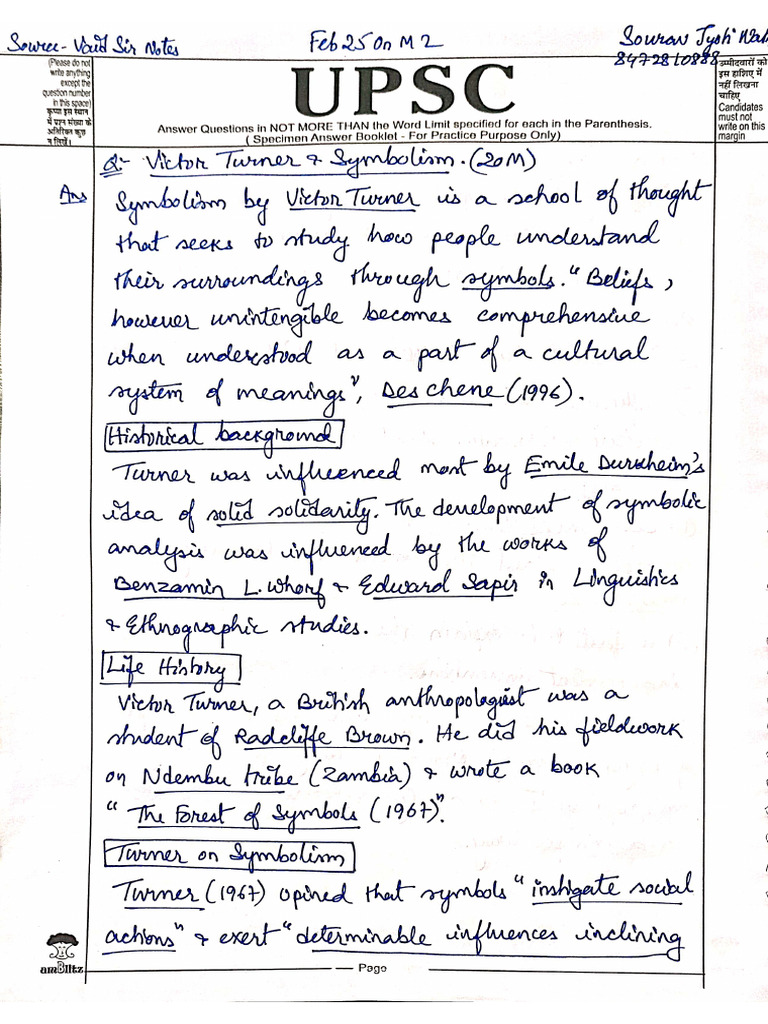 Source - Vaid Sir Notes
Feb 25 On M 2
Sourav Jyoti
8472810888
(Please do not
write anything
except the
question number
in this space)
कृपया इस स्थान
में प्रश्न संख्या के
अतिरिक्त कुछ
न लिखें।
UPSC
Answer Questions in NOT MORE THAN the Word Limit specified for each in the Parenthesis.
( Specimen Answer Booklet - For Practice Purpose Only)
उम्मीदवारों को
इस हाशिए में
नहीं लिखना
चाहिए
Candidates
must not
write on this
margin
Q:- Victor Turner & Symbolism. (20M)
Ans
Symbolism by Victor Turner is a school of thought
that seeks to study how people understand
their surroundings through symbols. "Beliefs,
however unintengible becomes comprehensive
when understood as a part of a cultural
system of meanings", Des chene (1996).
Historical background
Turner was influenced most by Emile Durkheim's
idea of solid solidarity. The development of symbolic
analysis was influenced by the works of
Benzamin L. Whorf & Edward Sapir in Linguistics
& Ethnographic studies.
Life History
Victor Turner, a British anthropologist was a
student of Radcliffe Brown. He did his fieldwork
on Ndembu tribe (Zambia) & wrote a book
"The Forest of Symbols (1967)".
Turner on Symbolism
Turner (1967) opined that symbols "instigate social
actions" & exert "determinable influences inclining
amBiltz
Page